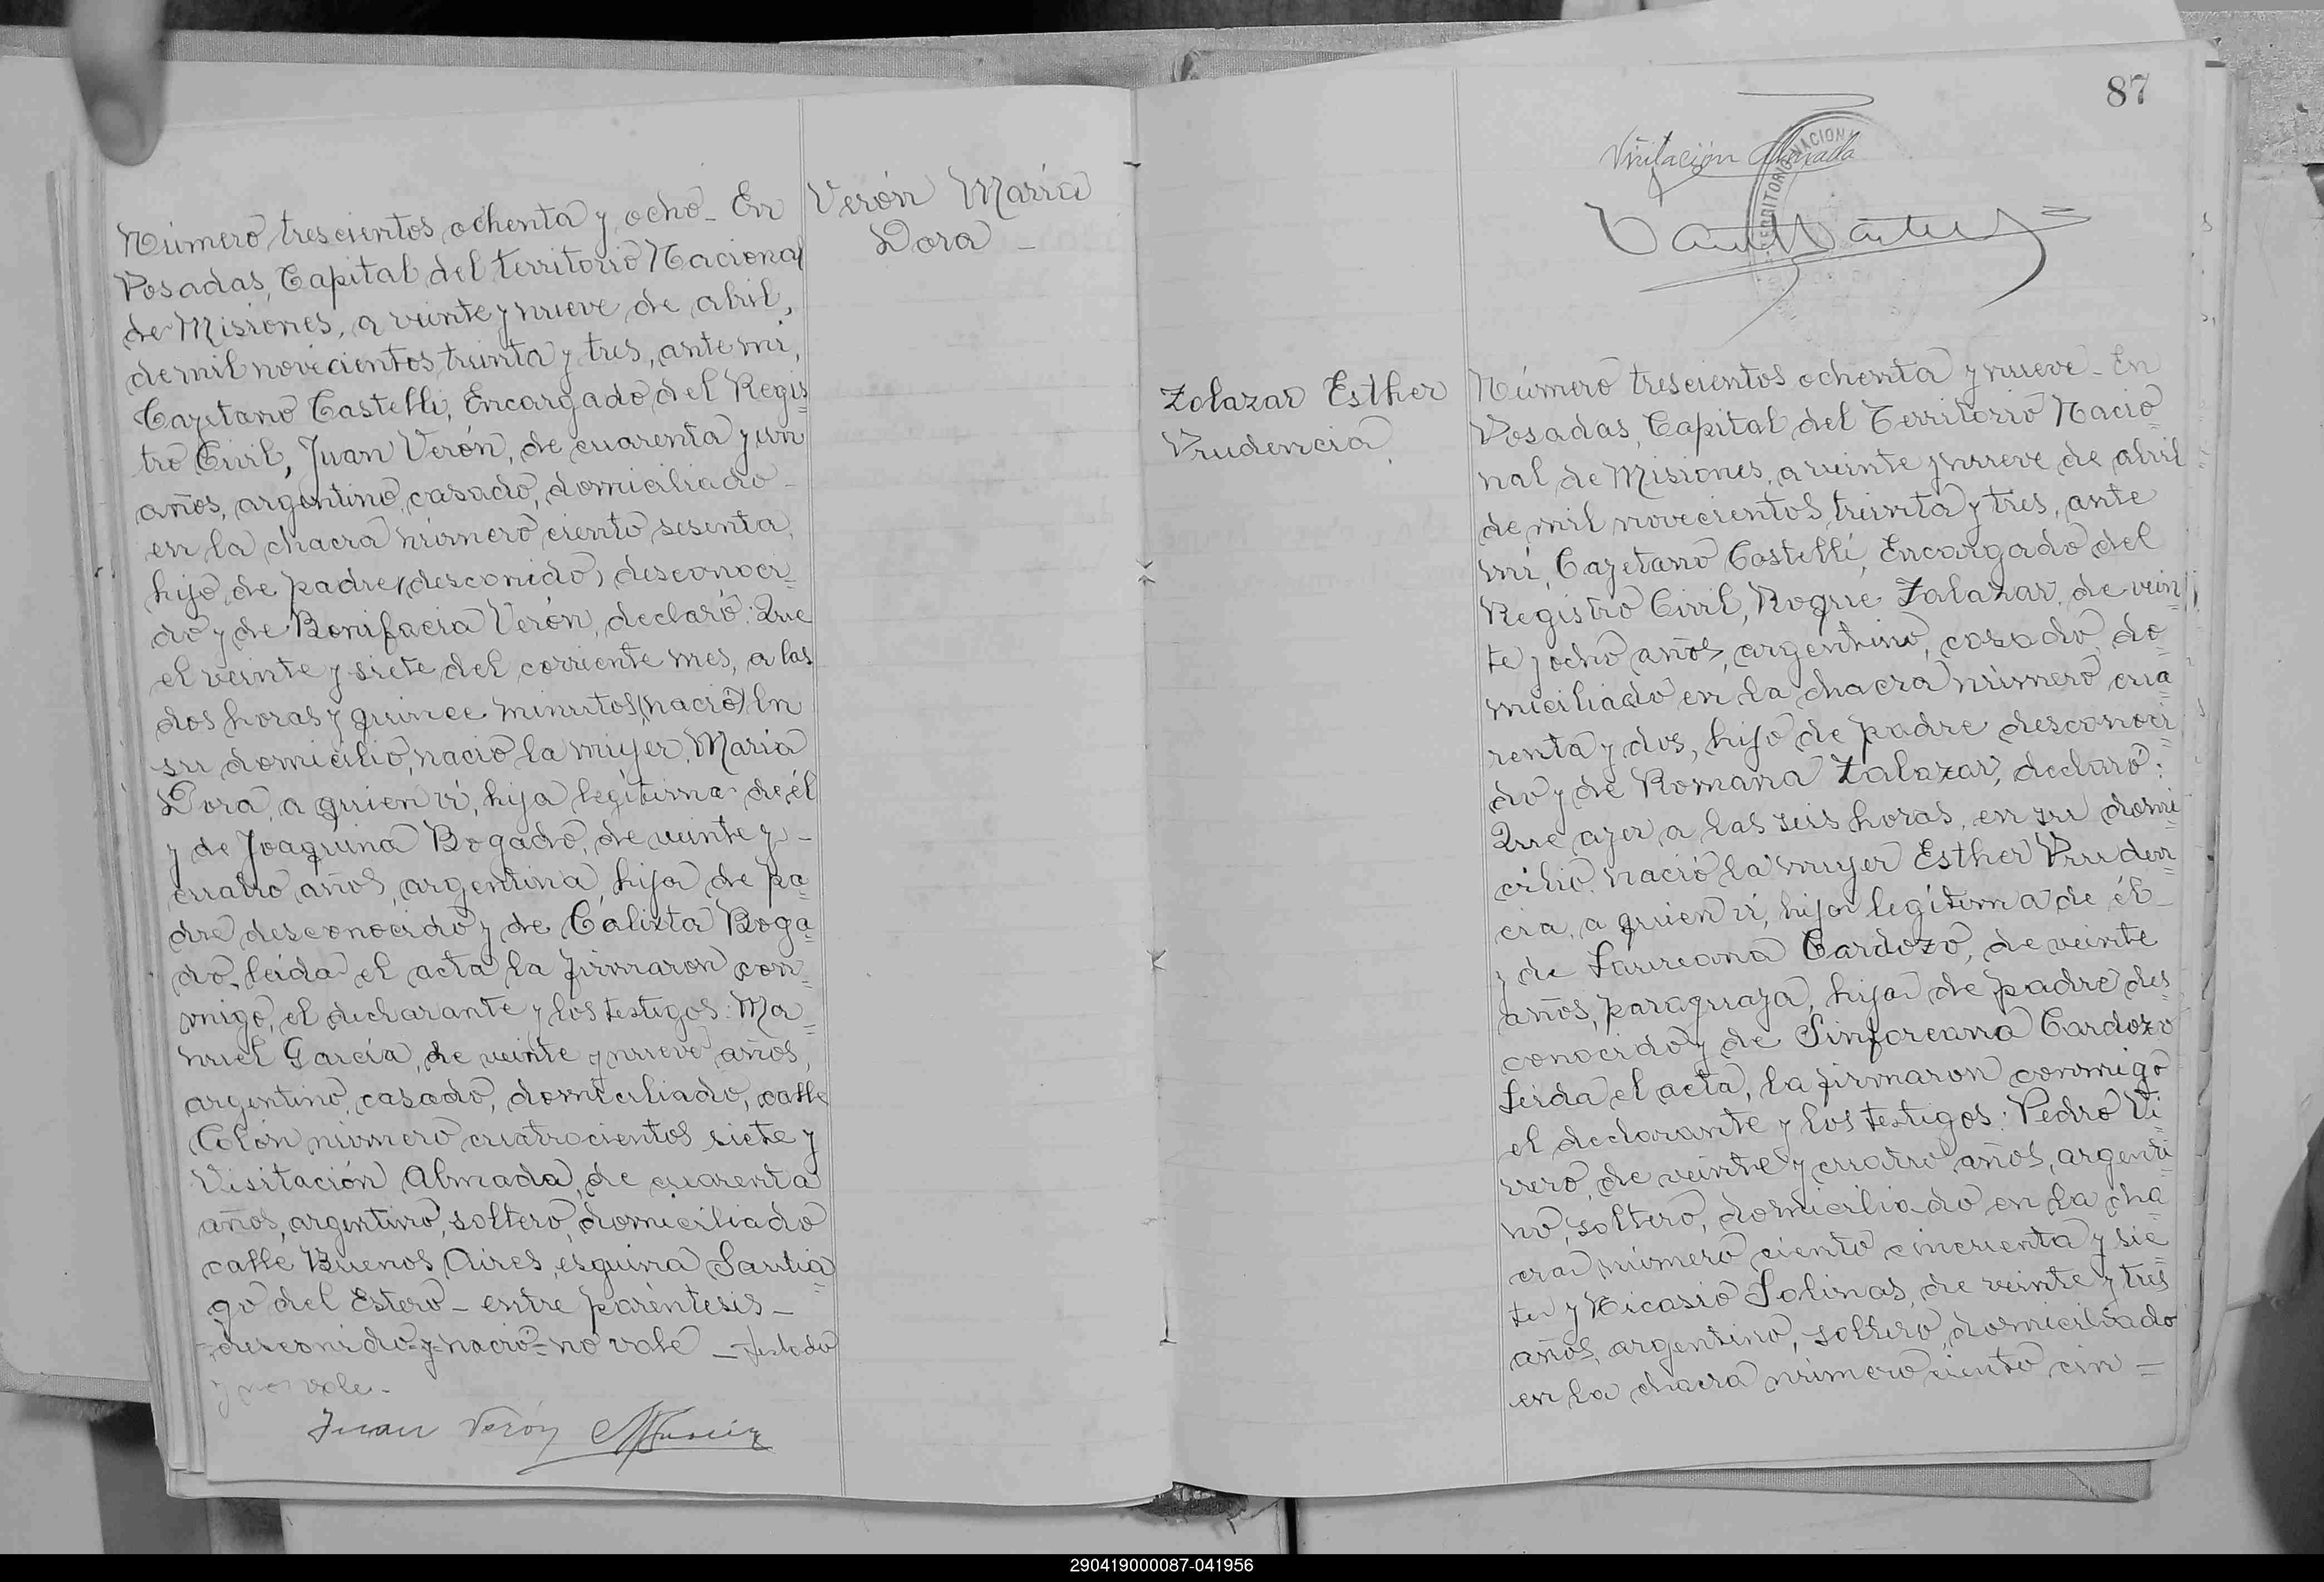 Número trescientos ochenta y ocho_ En
Posadas, Capital del territorio Nacional
de Misiones, a veinte y nueve de abril,
de mil novecientos treinta y tres, ante mí,
Cayetano Castelli, Encargado del Regis=
tro Civil, Juan Verón, de cuarenta y un
años, argentino, casado, domiciliado_
en la chacra número ciento sesenta,
hijo de padre (desconido) desconoci=
do y de Bonifacia Verón, declaró: Que
el veinte y siete del corriente mes, a las
dos horas y quince minutos, (nació) en
su domicilio, nació la mujer María
Dora, a quien ví, hija legítima de él
y de Joaquina Bogado, de veinte y_
cuatro años, argentina, hija de pa=
dre desconocido y de Calixta Boga=
do, leida el acta la firmaron con=
migo, el declarante y los testigos: Ma=
nuel García, de veinte y nueve años,
argentino, casado, domiciliado, calle
Colón número cuatrocientos siete y
Visitación Almada, de cuarenta
años, argentino, soltero, domiciliado
calle Buenos Aires, esquina Santia=
go del Estero_ entre paréntesis_
=desconido=y=nació=no vale_ testado
y no vale.
Juan Verón
Verón María
Dora_
87
TERRITORIO NACIONAL
Visitación Almada
Zalazar Esther
Prudencia,
Número trescientos ochenta y nueve_ En
Posadas, Capital del Territorio Nacio=
nal de Misiones, a veinte y nueve de abril
de mil novecientos treinta y tres, ante
mí, Cayetano Castelli, Encargado del
Registro Civil, Roque Zalazar, de vein=
te y ocho años, argentino, casado, do=
miciliado en la chacra número cua=
renta y dos, hijo de padre desconoci=
do y de Romana Zalazar, declaró:
Que ayer a las seis horas, en su domi=
cilio, nació la mujer Esther Pruden=
cia, a quien ví, hija legítima de él_
y de Laureana Cardozo, de veinte
años, paraguaya, hija de padre des=
conocido y de Sinforeana Cardozo
leida el acta, la firmaron conmigo
el declarante y los testigos: Pedro Vi=
vero, de veinte y cuatro años, argenti=
no, soltero, domiciliado en la cha=
cra número ciento cincuenta y sie=
te y Nicasio Solinas, de veinte y tres
años, argentino, soltero, domiciliado
en la chacra número ciento cin=
290419000087-041956